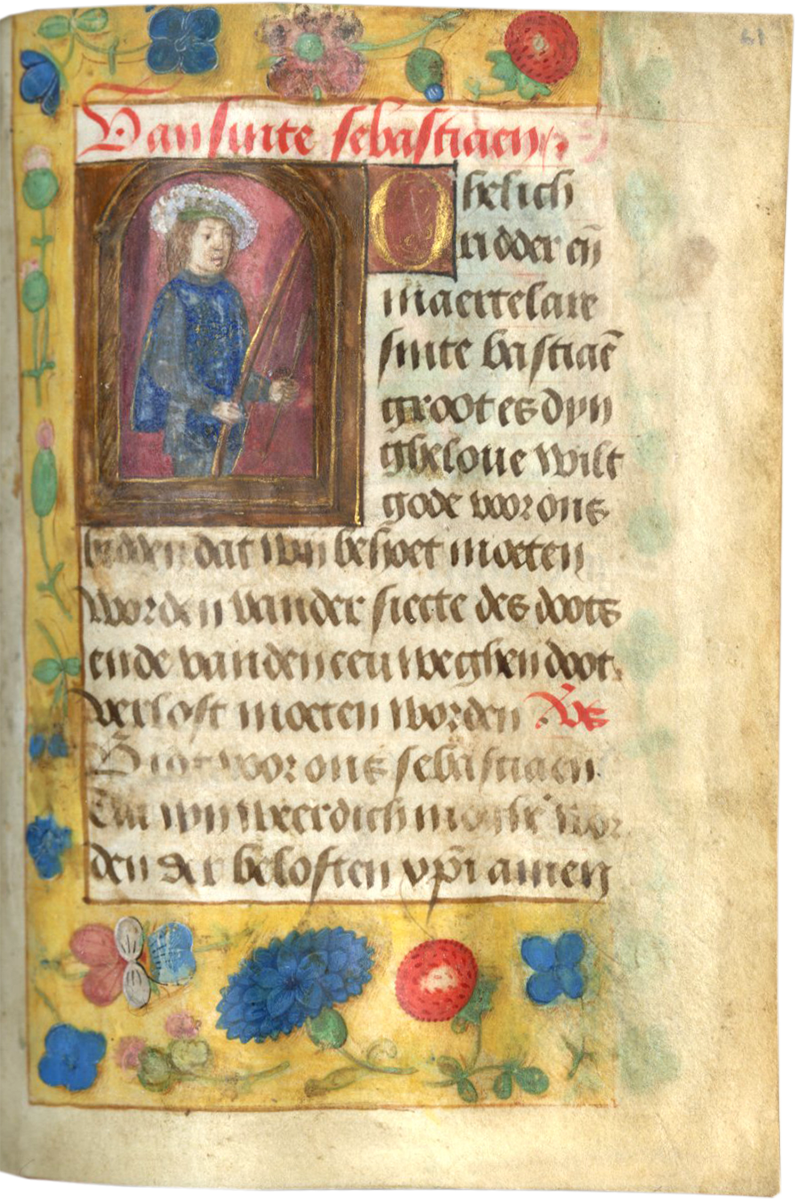 61
Van sinte sebastiaen
O helich
ridder eñ
maertelare
sinte bastiaē
groot es dyn
ghelove wilt
gode voor ons
bidden dat wij behoet moeten
worden van der siecte des doots
ende van den eeuweghen doot
verlost moeten worden Vs
Bidt voor ons sebastiaen
Dat wij weerdich moghē wor
den der beloften xp̄i amen